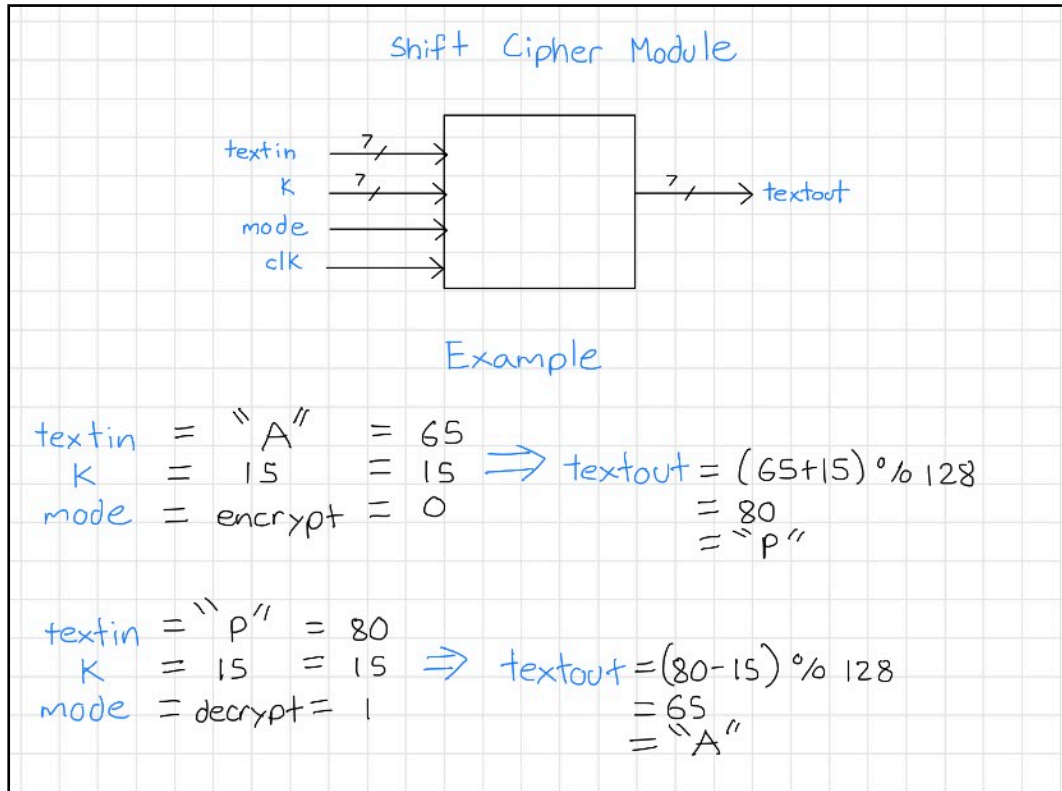 Shift Cipher Module
textin 7
K 7
7 textout
mode
clk
Example
textin = "A" = 65
K = 15 = 15 ⇒ textout = (65+15) % 128
mode = encrypt = 0
= 80
= "P"
textin = "P" = 80
K = 15 = 15 ⇒ textout = (80-15) % 128
mode = decrypt = 1
= 65
= "A"